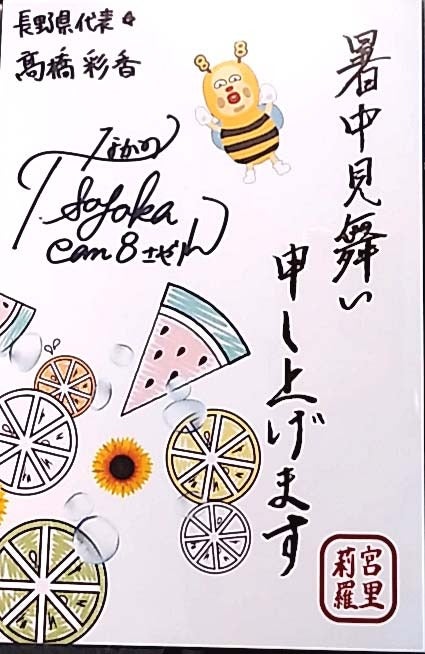 暑中見舞い
申し上げます
長野県代表
髙橋彩香
T. Sayaka
can8
宮里
莉羅